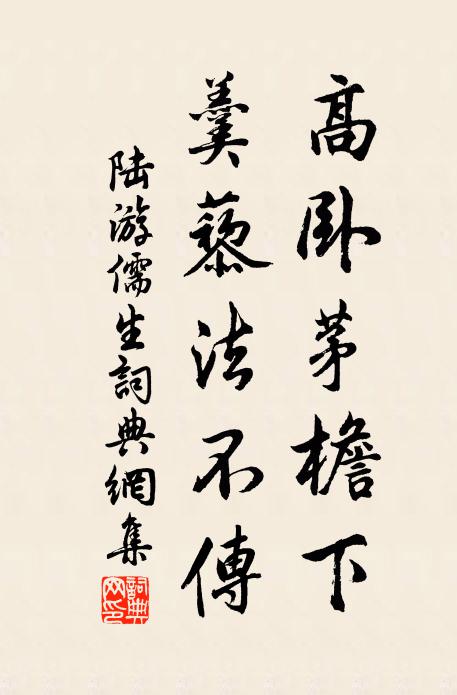 高臥茅檐下
羹藜法不傳
陸游儒生詞典網集
詞典網印